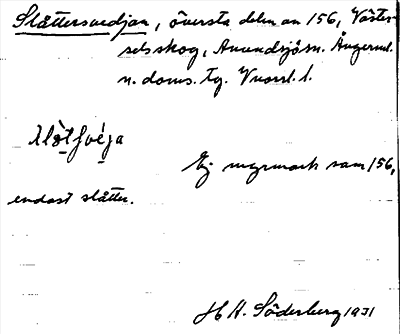 Slåttersvedjan, översta delen av 156, Väster-
selsskog, Anundsjö sn. Ångerml.
n. doms. tg. Vnorrl. l.
Ej myrmark som 156,
endast slåtter.
H A. Söderberg 1931